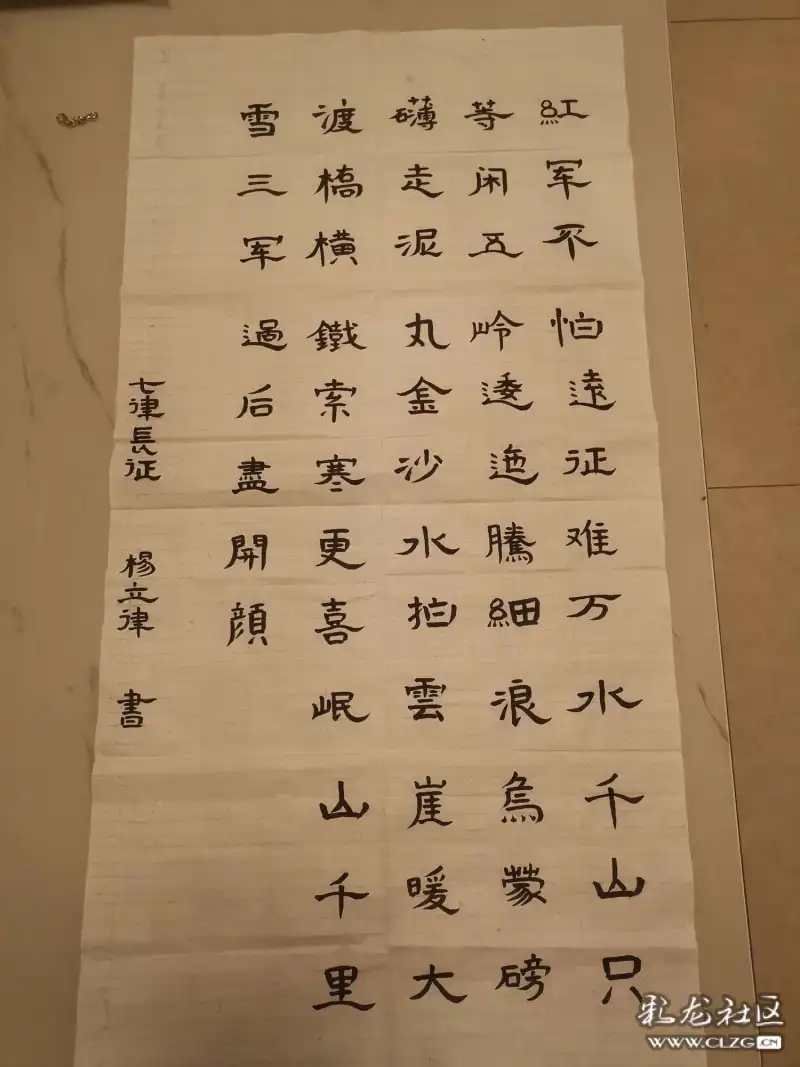 紅军不怕遠征难万水千山只
等闲五岭逶迤騰細浪烏蒙磅
礴走泥丸金沙水拍雲崖暖大
渡橋横鐵索寒更喜岷山千里
雪三军過后盡開顔
七律長征 楊立律 書
彩龙社区
WWW.CLZG.CN